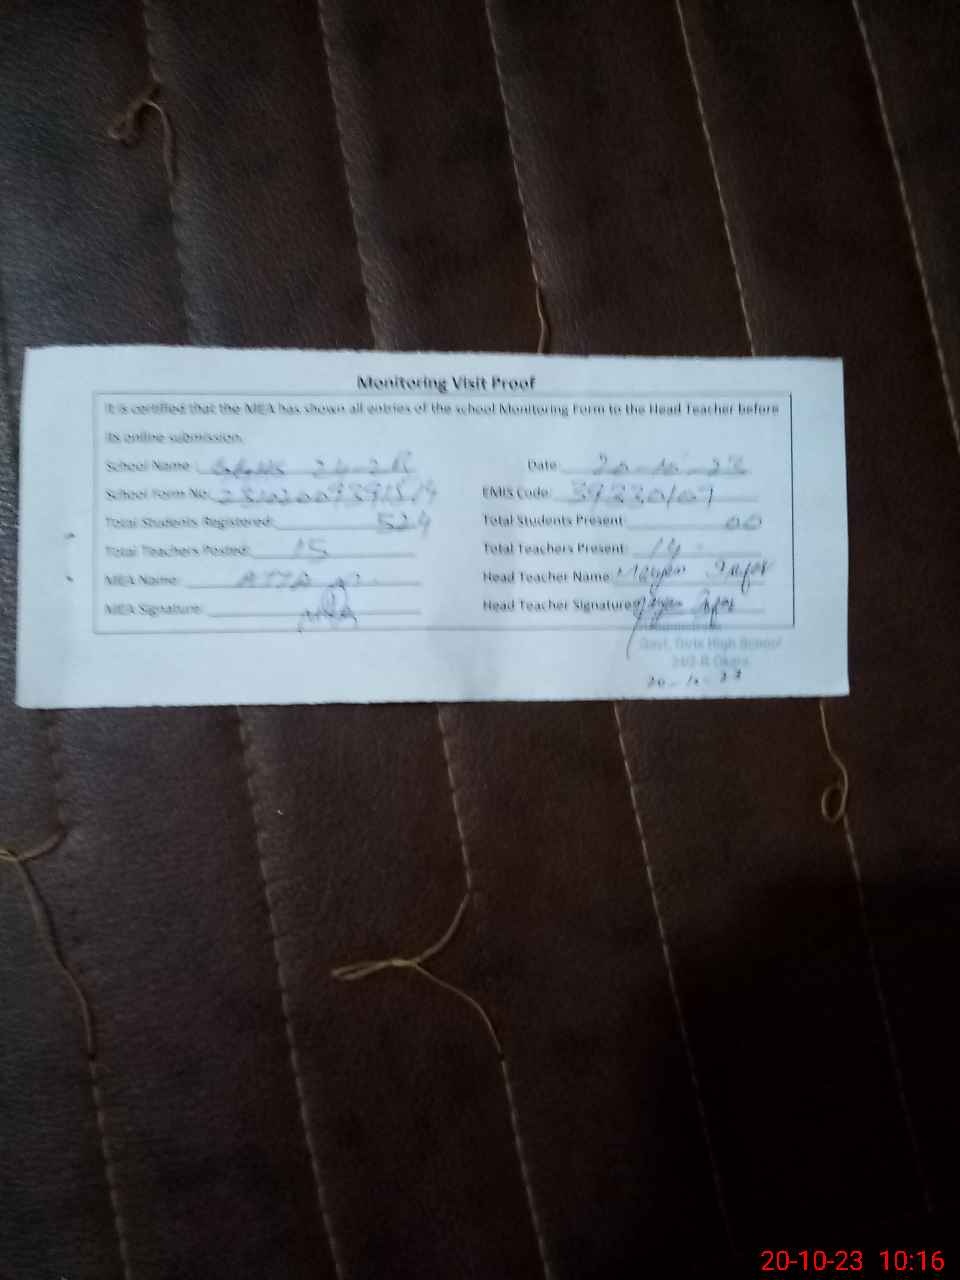 Monitoring Visit Proof
It is certified that the MEA has shown all entries of the school Monitoring Form to the Head Teacher before
its online submission.
School Name: GGHS 24-2R Date: 20-10-23
School Form No: EMIS Code: 39330109
Total Students Registered: 524 Total Students Present: 00
Total Teachers Posted: 15 Total Teachers Present: 14
MEA Name: Head Teacher Name: Maryam
MEA Signature: Head Teacher Signature:
Govt. Girls High School
Okara
20-10-23
20-10-23 10:16